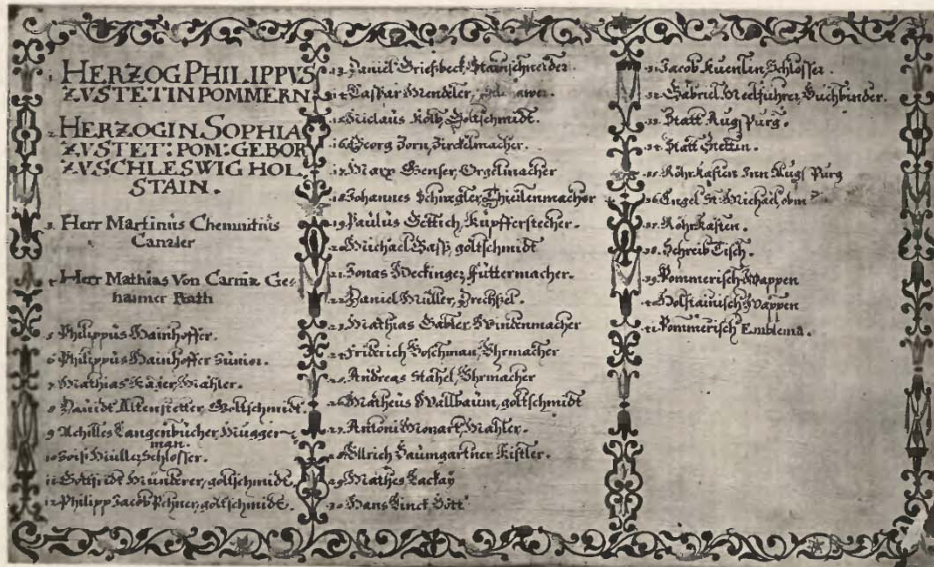 1. HERZOG PHILIPPVS
ZVSTETIN POMMERN
2. HERZOGIN SOPHIA
ZVSTET: POM: GEBOR
ZVSCHLESWIG HOL
STAIN.
3. Herr Martinus Chemnitius
Canzler
4. Herr Mathias Von Carniz Ge=
haimer Rath
5. Philippüs Hainhoffer.
6. Philippüs Hainhoffer Junior.
7. Mathias Kager, Mahler.
8. Dauidt Altenstetter, Goltschmidt.
9. Achilles Langenbücher,
man.
10. Müller, Schlosser.
11. Gottfridt Münderer, goltschmidt.
12. Philipp Jacob goltschmidt.
13. Daniel Griesbeck, Stainschneider.
14. Caspar Mendeler,
15. Niclaüs Kolb, Goltschmidt.
16. Georg Zorn, Zirckelmacher.
17. Marx Genser, Orgelmacher
18. Johannes Schwegler,
19. Paulus Göttich, Kupfferstecher.
20. Michael Gass, goltschmidt
21. Jonas Füttermacher.
22. Daniel Müller,
23. Mathias Gabler, Windenmacher
24. Friderich Boschman, Vhrmacher
25. Andreas Stahel, Vhrmacher
26. Matheus Wallbaum, goltschmidt
27. Antoni Mozart, Mahler.
28. Vllrich Baumgartner Kistler.
29. Mathes Lackay
30. Hans
31. Jacob Kuenlin, Schlosser.
32. Gabriel Meelführer, Buchbinder.
33. Statt Augspurg.
34. Statt Stettin.
35. Röhrkasten Inn Augspurg
36. Engel St: Michael,
37. Röhrkasten.
38. Schreib Tisch.
39. Pommerisch Wappen
40. Holstainisch Wappen
41. Pommerisch Emblema.